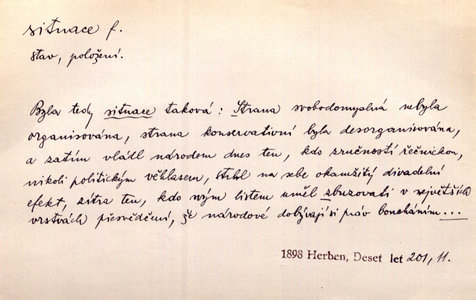 situace f.
stav, položení.
Byla tedy situace taková: Strana svobodomyslná nebyla
organisována, strana konservativní byla desorganisována,
a zatím vládl národem dnes ten, kdo zručností řečnickou,
nikoli politickým věhlasem, strhl na sebe okamžitý divadelní
efekt, zítra ten, kdo svým listem uměl zbuzovati v největších
vrstvách přesvědčení, že národové dobývají si práv boucháním...
1898 Herben, Deset let 201, 11.